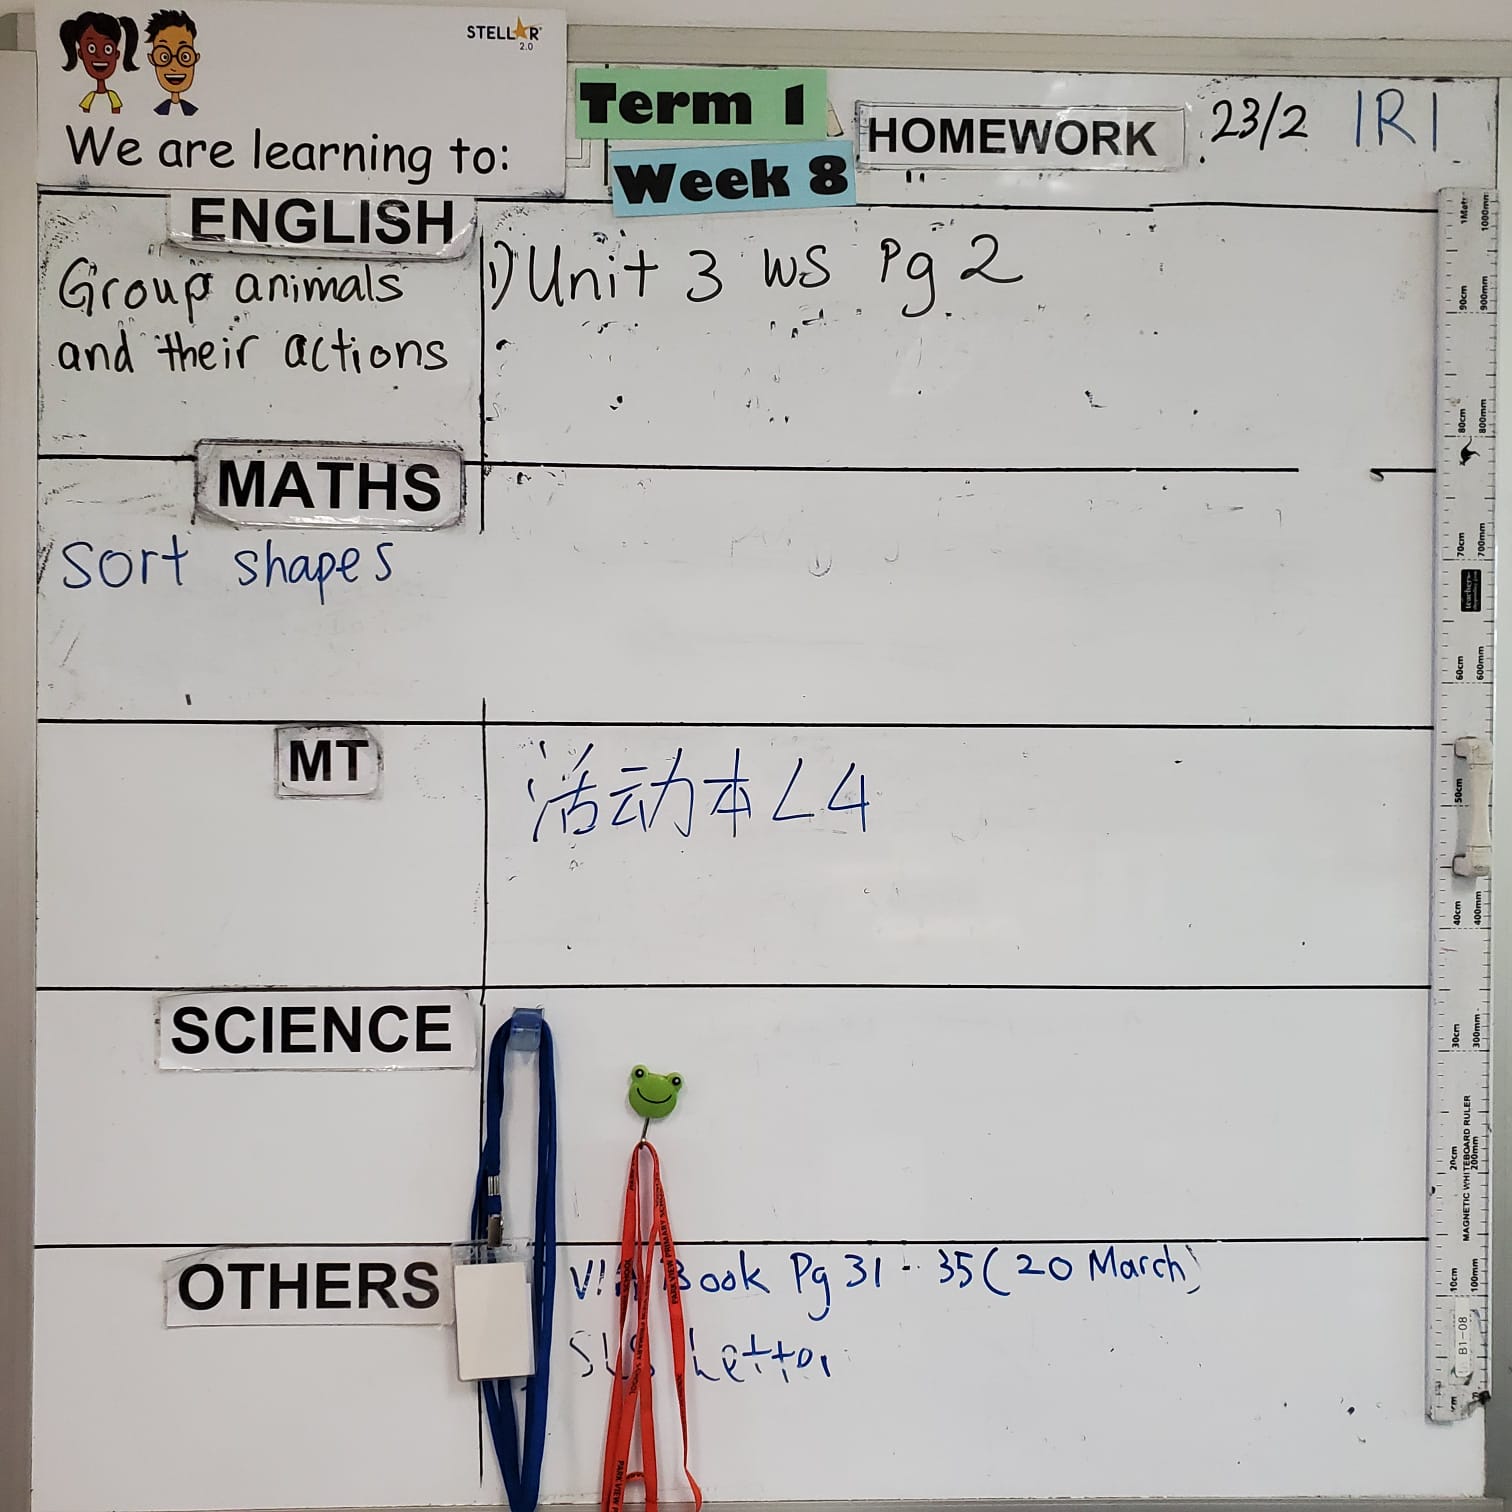 STELLAR
2.0
We are learning to:
Term 1
Week 8
HOMEWORK
23/2 1R1
ENGLISH
Group animals
and their actions
1) Unit 3 WS Pg 2
MATHS
Sort shapes
MT
活动本 L4
SCIENCE
OTHERS
Book Pg 31 - 35 (20 March)
Letter
PARK VIEW PRIMARY SCHOOL
1Metr 1000mm
90cm 900mm
80cm 800mm
70cm 700mm
60cm 600mm
50cm
40cm 400mm
30cm 300mm
20cm 200mm
10cm 100mm
MAGNETIC WHITEBOARD RULER
B1-08